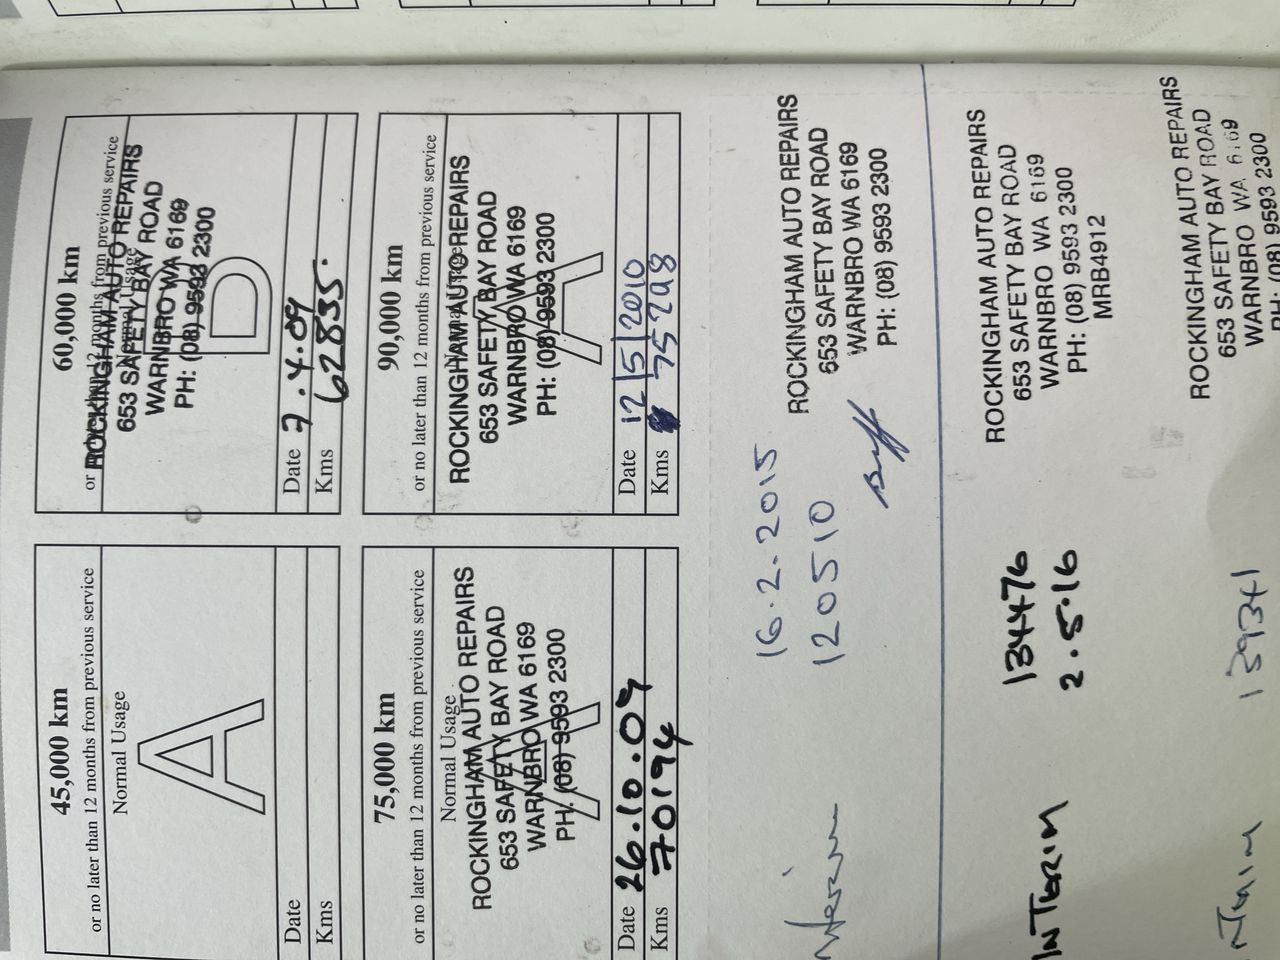 45,000 km
or no later than 12 months from previous service
Normal Usage
A
Date
Kms
60,000 km
or no later than 12 months from previous service
Normal Usage
ROCKINGHAM AUTO REPAIRS
653 SAFETY BAY ROAD
WARNBRO WA 6169
PH: (08) 9593 2300
D
Date 7.4.09
Kms 62835.
75,000 km
or no later than 12 months from previous service
Normal Usage
ROCKINGHAM AUTO REPAIRS
653 SAFETY BAY ROAD
WARNBRO WA 6169
PH: (08) 9593 2300
A
Date 26.10.09
Kms 70194
90,000 km
or no later than 12 months from previous service
Normal Usage
ROCKINGHAM AUTO REPAIRS
653 SAFETY BAY ROAD
WARNBRO WA 6169
PH: (08) 9593 2300
A
Date 12/5/2010
Kms 75298
16.2.2015
120510
ROCKINGHAM AUTO REPAIRS
653 SAFETY BAY ROAD
WARNBRO WA 6169
PH: (08) 9593 2300
INTERIM
134476
2.5.16
ROCKINGHAM AUTO REPAIRS
653 SAFETY BAY ROAD
WARNBRO WA 6169
PH: (08) 9593 2300
MRB4912
139341
ROCKINGHAM AUTO REPAIRS
653 SAFETY BAY ROAD
WARNBRO WA 6169
PH: (08) 9593 2300